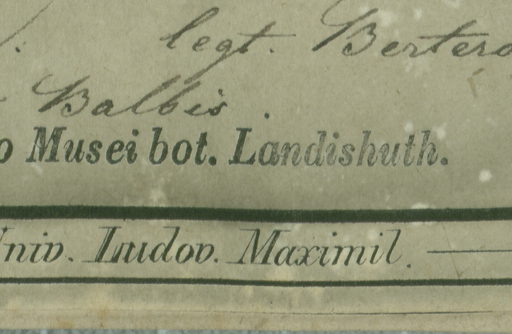 legt. Bertero
Balbis.
o Musei bot. Landishuth.
Univ. Ludov. Maximil.